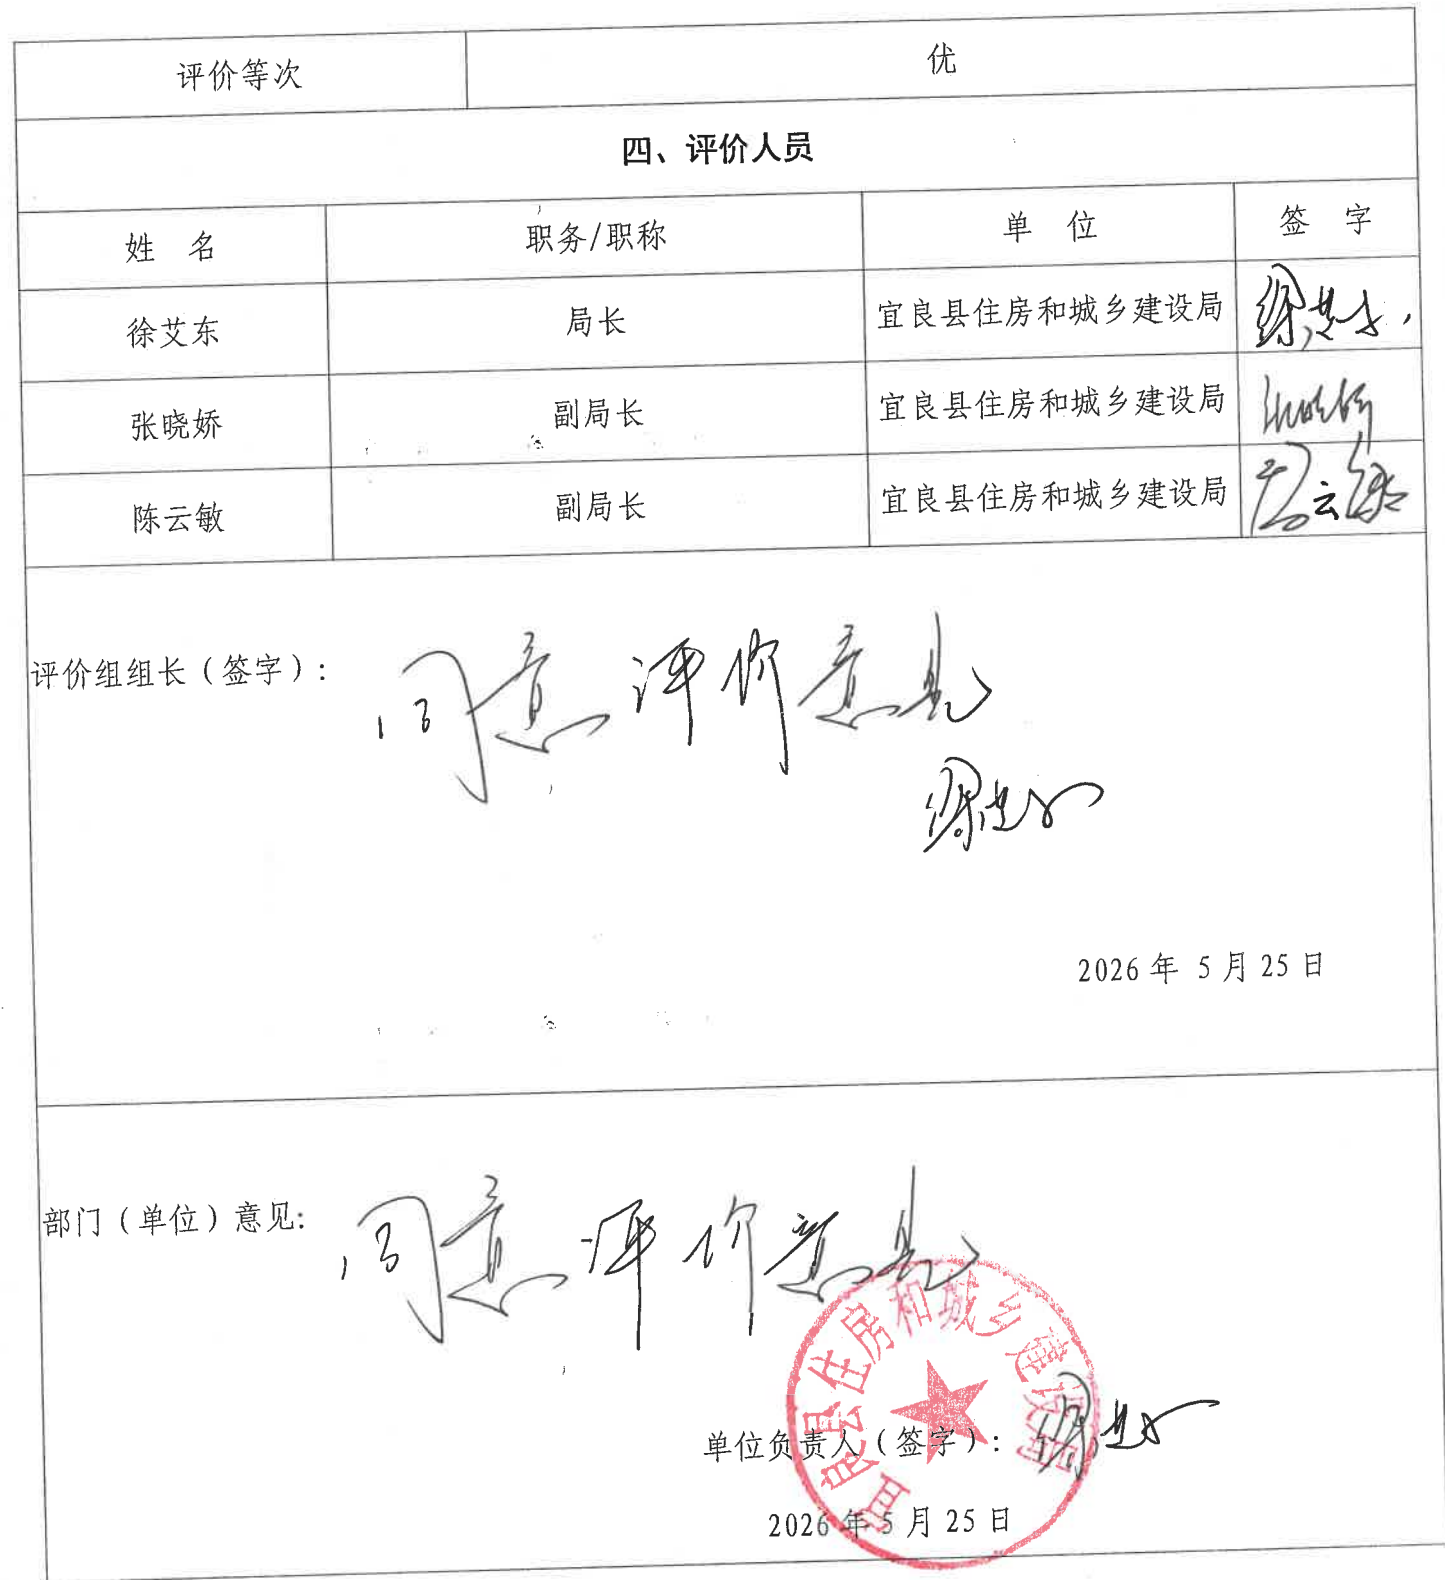 评价等次 优
四、评价人员
姓 名 职务/职称 单 位 签 字
徐艾东 局长 宜良县住房和城乡建设局 徐艾东
张晓娇 副局长 宜良县住房和城乡建设局 张晓娇
陈云敏 副局长 宜良县住房和城乡建设局 陈云敏
评价组组长（签字）: 同意评价意见
徐艾东
2026 年 5 月 25 日
部门（单位）意见: 同意评价意见
宜良县住房和城乡建设局
单位负责人（签字）: 徐艾东
2026 年 5 月 25 日